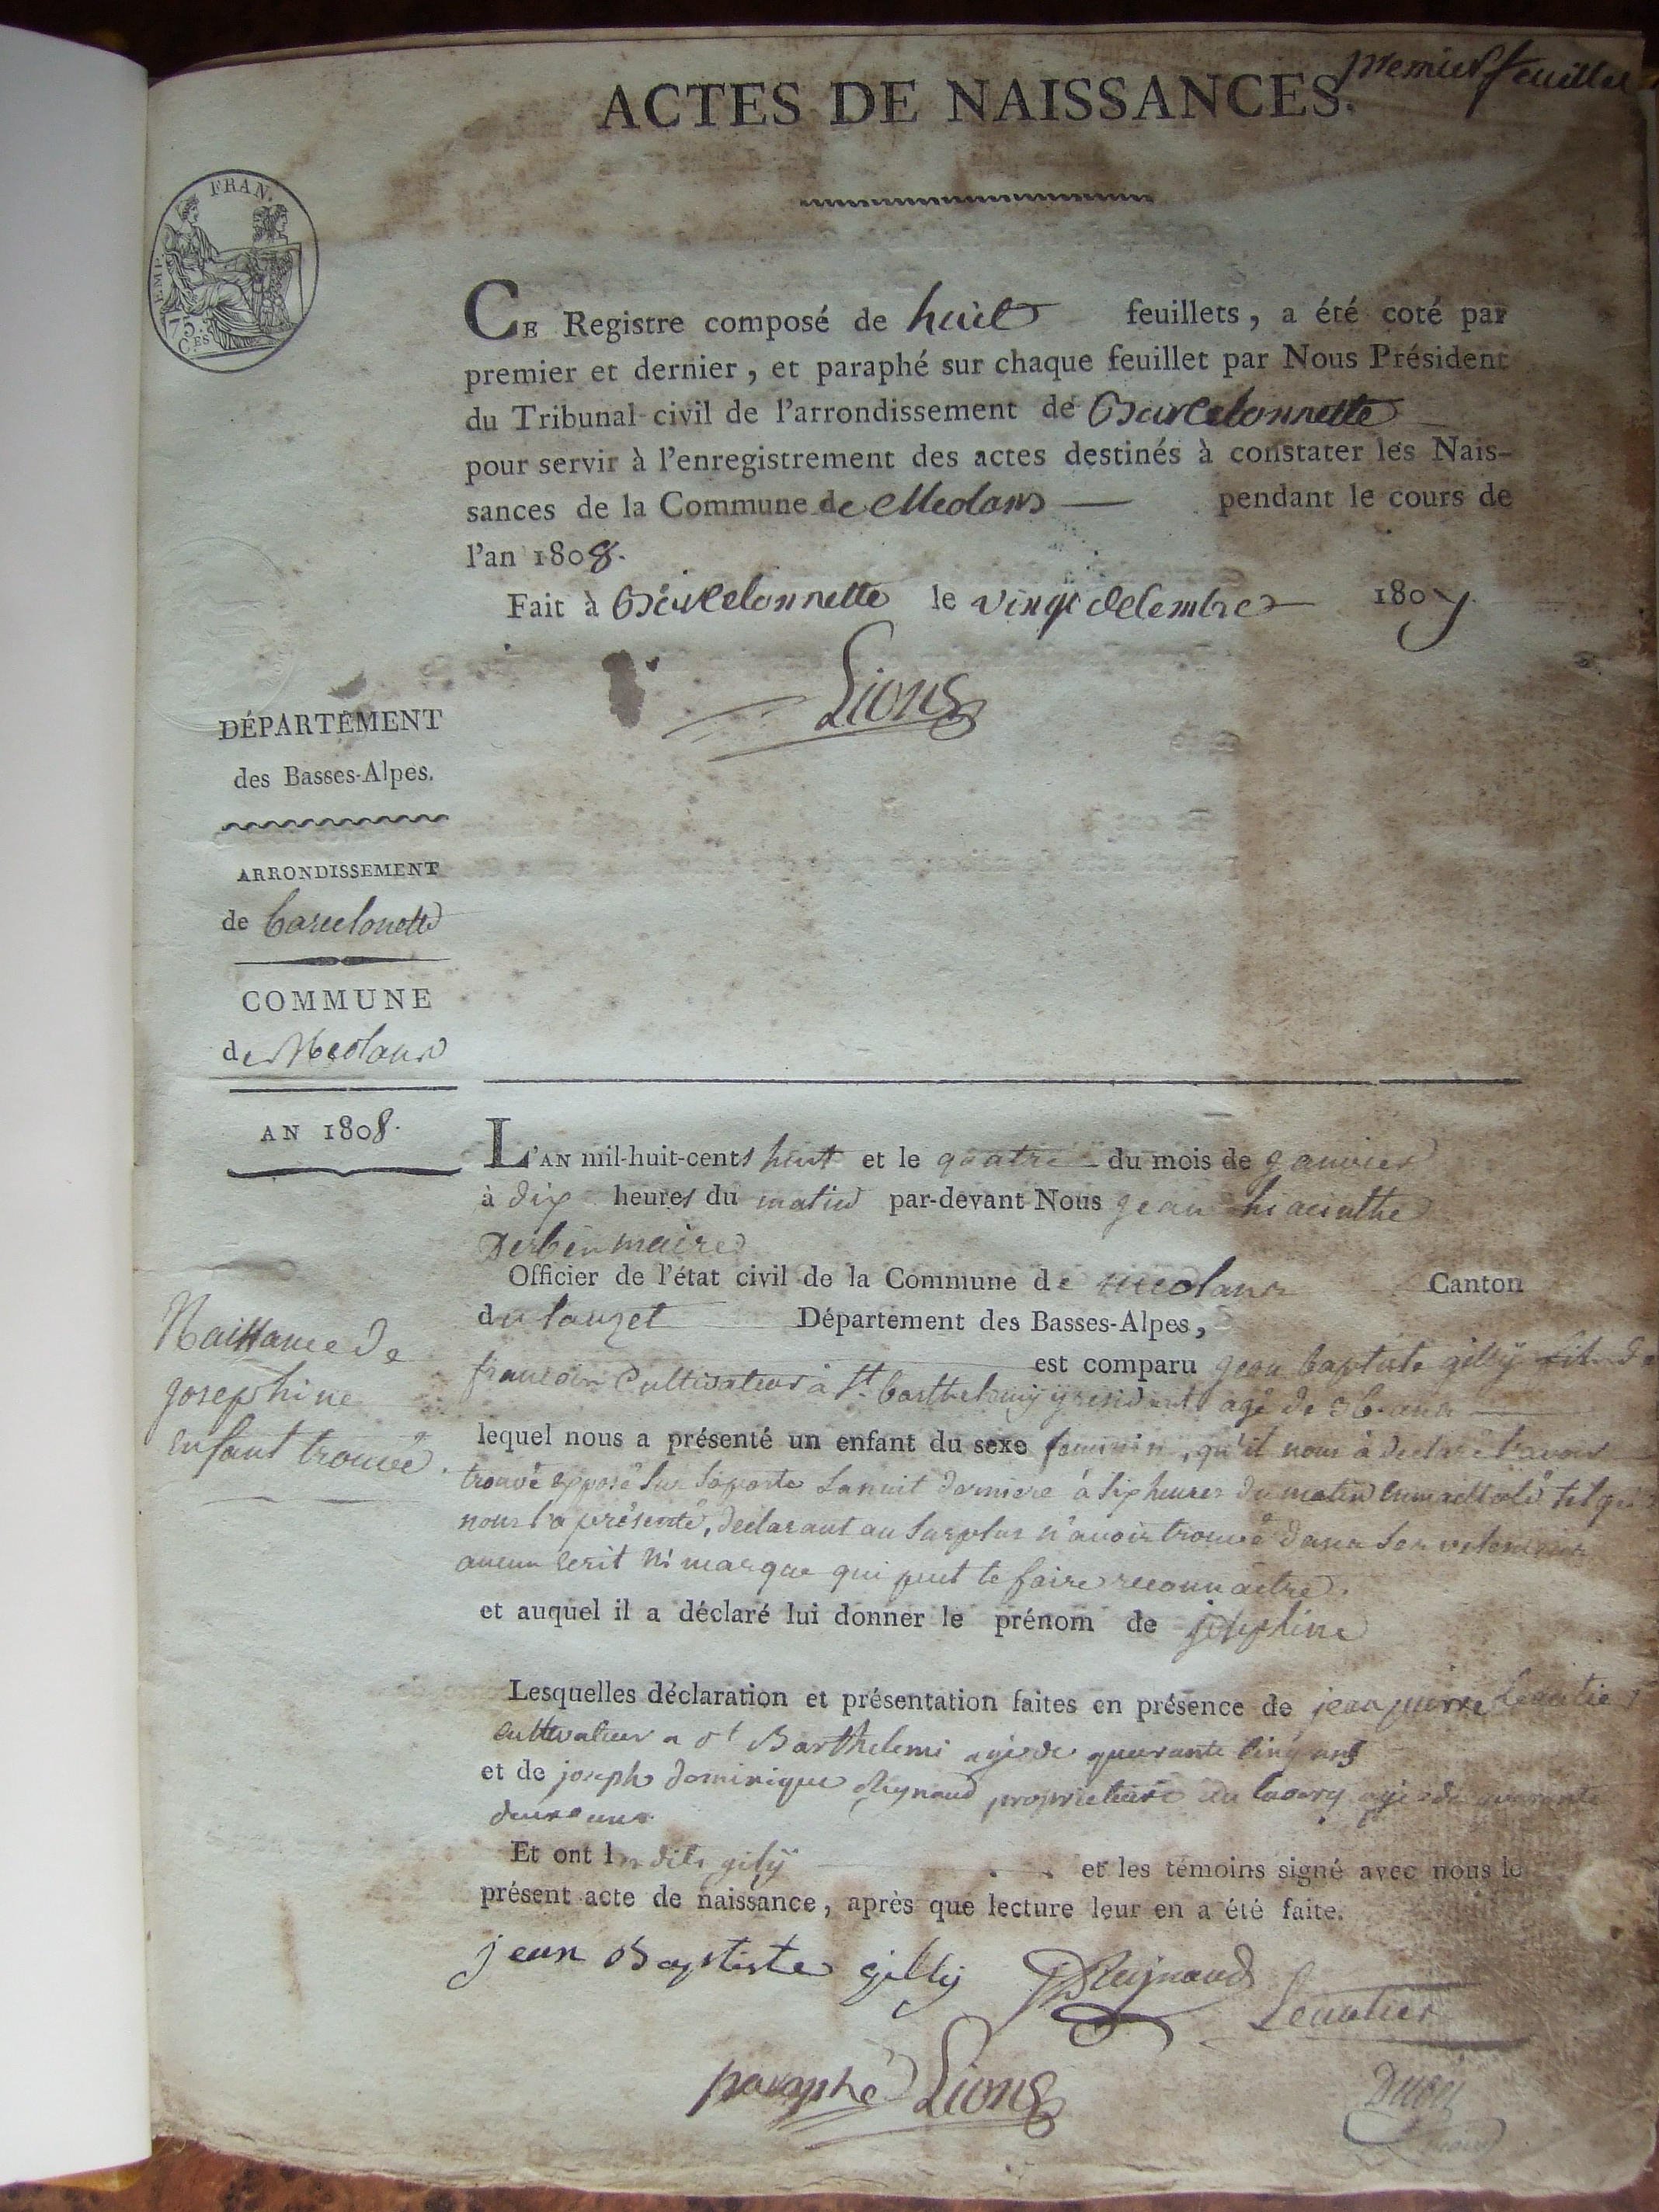 premier feuillet
ACTES DE NAISSANCES.
FRAN.
EMP.
75.
CES
CE Registre composé de huit feuillets, a été coté par
premier et dernier, et paraphé sur chaque feuillet par Nous Président
du Tribunal civil de l'arrondissement de Barcelonnette
pour servir à l'enregistrement des actes destinés à constater les Nais-
sances de la Commune de Meolans pendant le cours de
l'an 1808.
Fait à Barcelonnette le vingt decembre 1807.
Lions
DÉPARTEMENT
des Basses-Alpes.
ARRONDISSEMENT
de barcelonette
COMMUNE
de Meolans
AN 1808.
L'AN mil-huit-cents huit et le quatre du mois de janvier
à dix heures du matin par-devant Nous jean hiacinthe
Derbèn maire
Officier de l'état civil de la Commune de meolans Canton
du lauzet Département des Basses-Alpes,
est comparu jean baptiste gilly fils de
francois Cultivateur à st. barthelemy y residant agé de 36. ans
lequel nous a présenté un enfant du sexe feminin, qu'il nous à declaré l'avoir
trouvé exposé sur saporte la nuit derniere à six heures du matin tel qu'il
nous l'a présenté, declarant au surplus n'avoir trouvé dans ses vetemens
aucun ecrit ni marque qui put le faire reconnaitre.
et auquel il a déclaré lui donner le prénom de josephine
Naissance de
josephine
enfant trouvé.
Lesquelles déclaration et présentation faites en présence de jean pierre Leautier
cultivateur a st Barthelemi agé de quarante cinq ans
et de joseph dominique Reynaud proprietaire au agé de quarante
deux ans
Et ont les dits gilÿ et les témoins signé avec nous le
présent acte de naissance, après que lecture leur en a été faite.
jean Baptiste gilly JDReynaud
Leautier
paraphé Lions